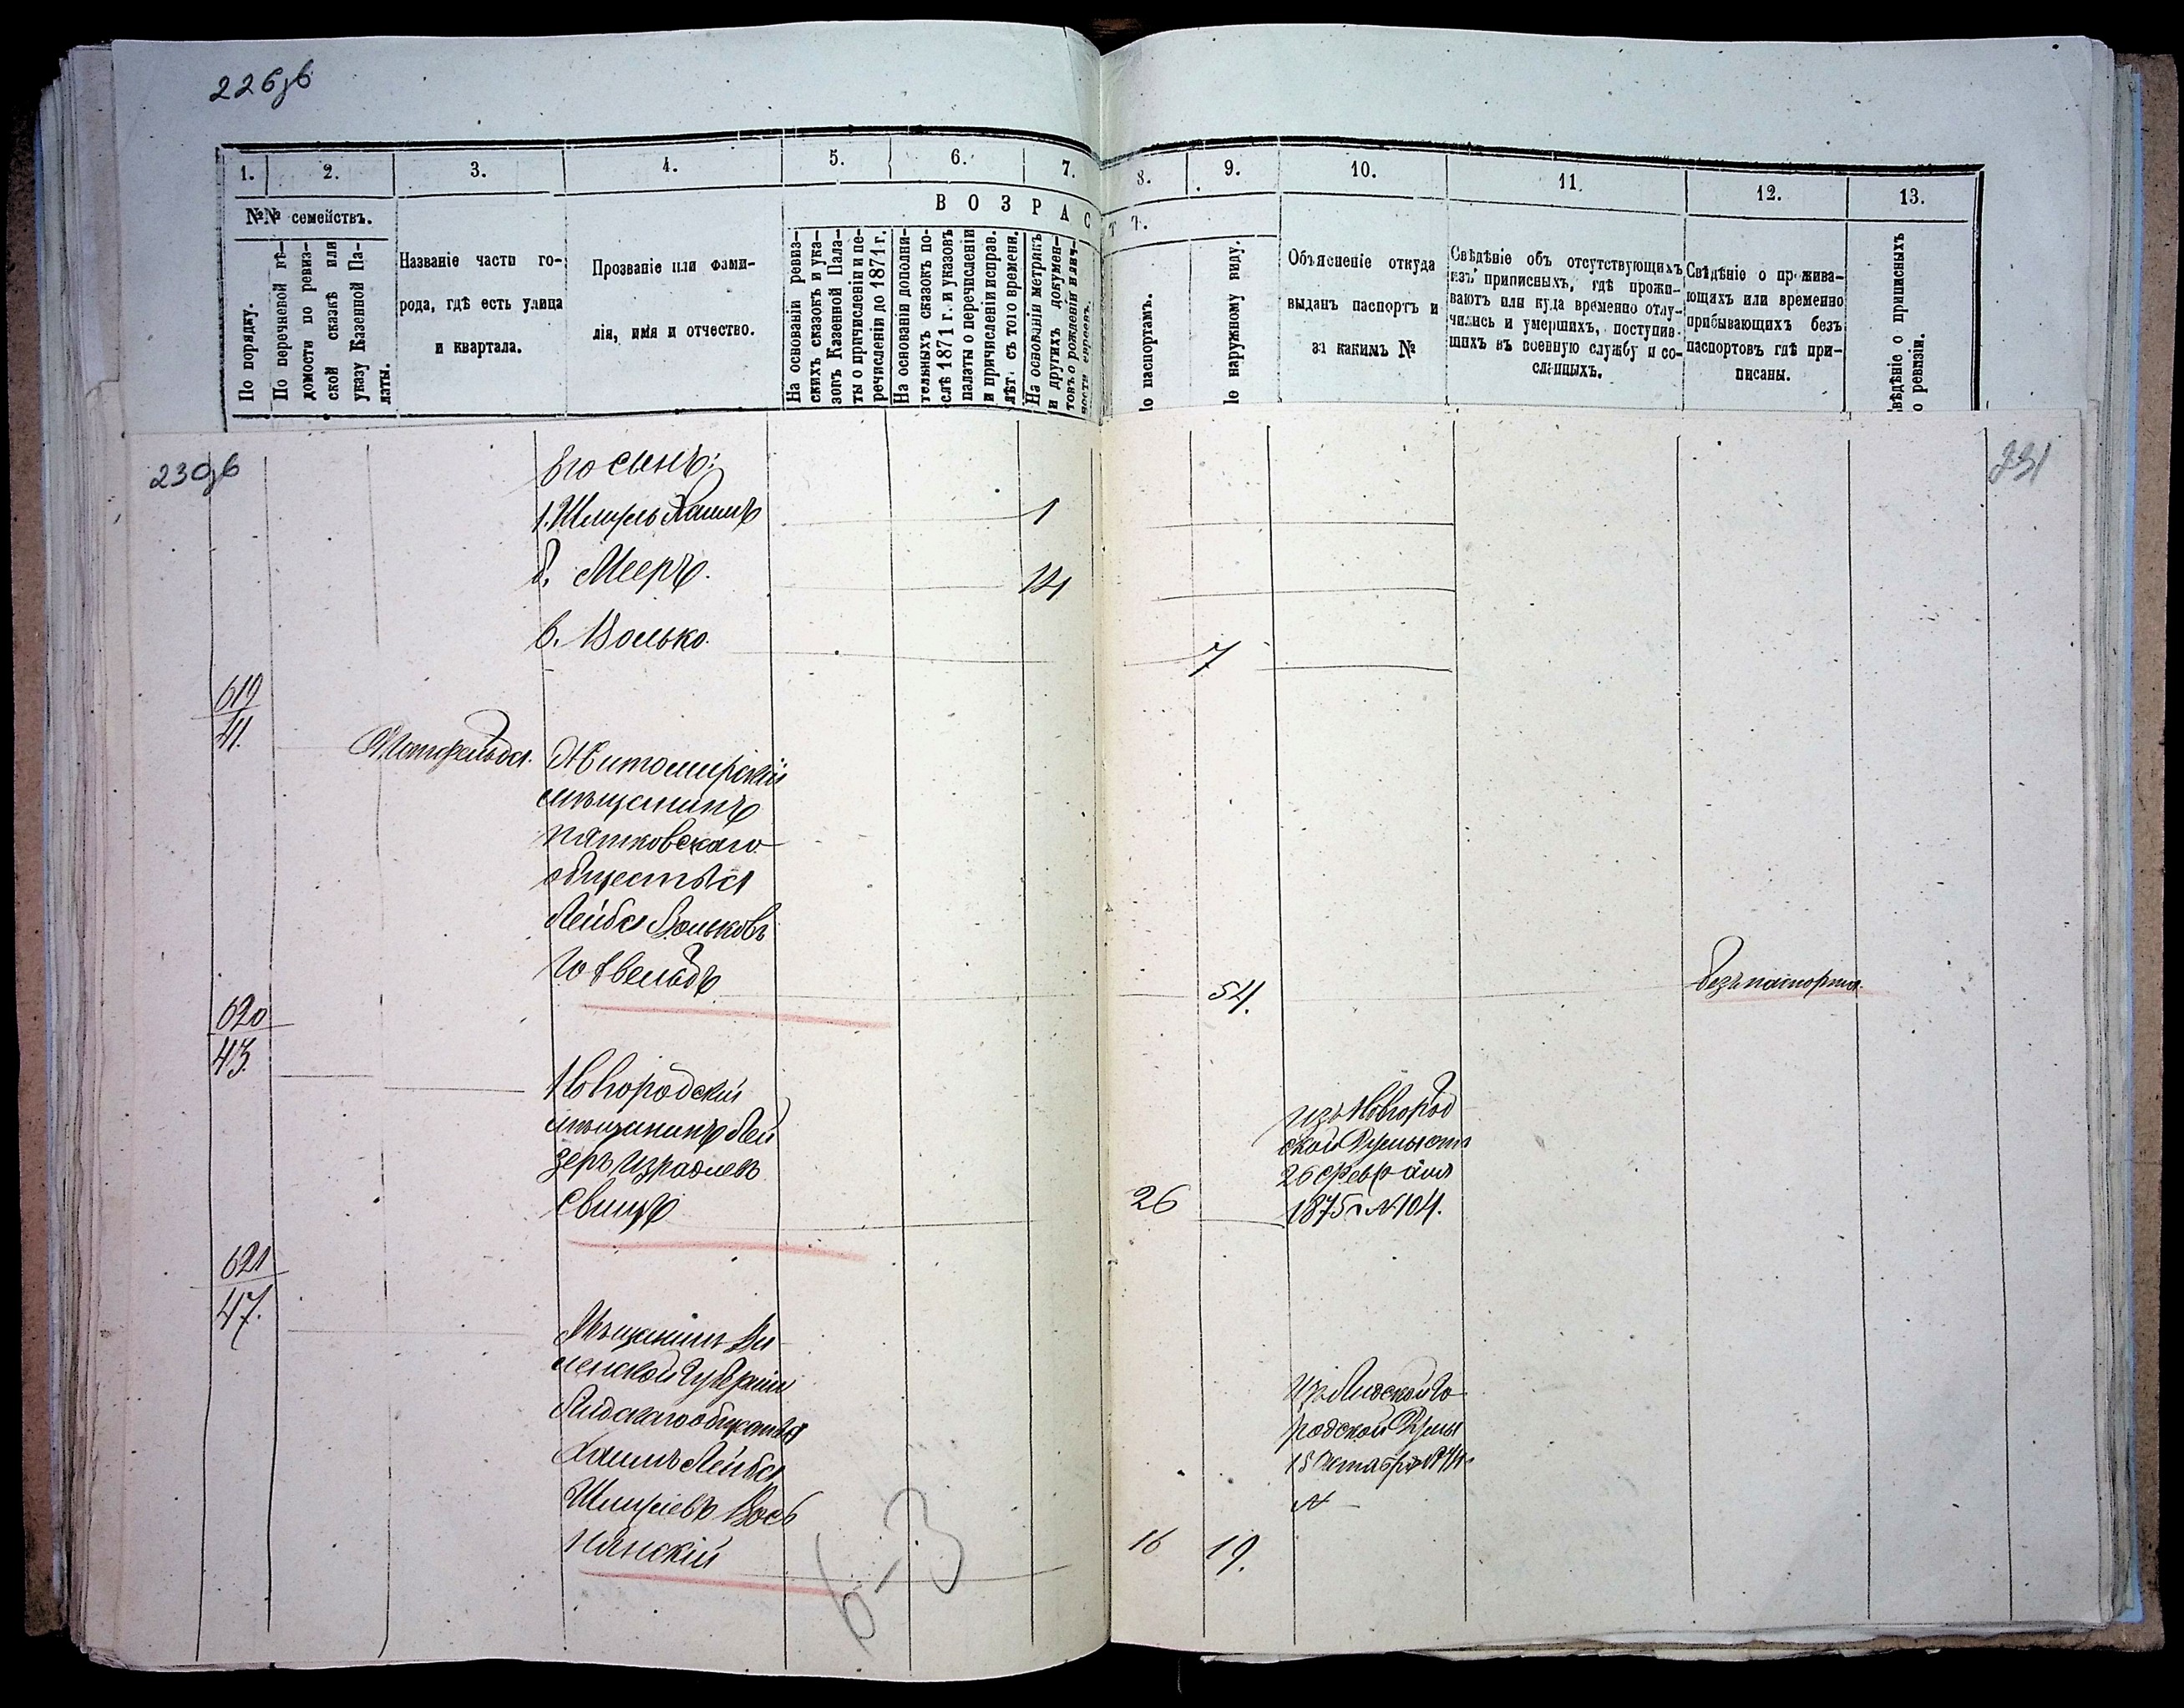 226об
1. 2. 3. 4. 5. 6. 7. 8. 9. 10. 11. 12. 13.
В О З Р А С Т Ъ.
№№ семействъ.
По порядку.
По перечневой вѣ-
домости по ревиз-
ской сказкѣ или
указу Казенной Па-
латы.
Названіе части го-
рода, гдѣ есть улица
и квартала.
Прозваніе или фами-
лія, имя и отчество.
На основаніи ревиз-
скихъ сказокъ и ука-
зовъ Казенной Пала-
ты о причисленіи и пе-
речисленіи до 1871 г.
На основаніи дополни-
тельныхъ сказокъ по-
слѣ 1871 г. и указовъ
палаты о перечисленіи
и причисленіи исправ.
лѣт. съ того времени.
На основаніи метрикъ
и другихъ докумен-
товъ о рожденіи и лич-
ности евреевъ.
По паспортамъ.
По наружному виду.
Объясненіе откуда
выданъ паспортъ и
за какимъ №
Свѣдѣніе объ отсутствующихъ
изъ приписныхъ, гдѣ прожи-
ваютъ или куда временно отлу-
чились и умершихъ, поступив-
шихъ въ военную службу и со-
сланныхъ.
Свѣдѣніе о прожива-
ющихъ или временно
прибывающихъ безъ
паспортовъ гдѣ при-
писаны.
Свѣдѣніе о приписныхъ
по ревизіи.
230об
231
Его сынъ:
1. Шмуль Хаимъ 1
б. Мееръ. 14
в. Волько. 7
619
41.
Житомирскій
мѣщанинъ
пятковскаго
общества
Лейба Вольковъ
Готвельдъ 54. безъ паспорта.
620
43.
Новгородскій
мѣщанинъ Лей
зеръ Израилевъ
Свицъ 26
изъ Новгород
ской Думы отъ
26 февраля
1875 г. № 104.
621
47.
Мѣщанинъ Ви-
ленской Губерніи
Лидскаго общества
Хаимъ Лейба
Шмуіевъ Вось
нянскій 16 19.
Изъ Лидской Го-
родской Думы
15 Октября
№ —
6-3